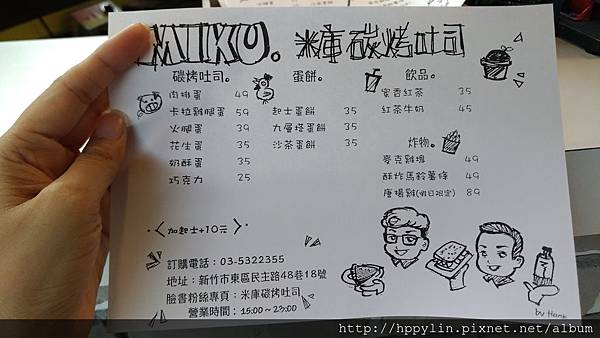 MIKU。米庫碳烤吐司
碳烤吐司。
肉排蛋 49
卡拉雞腿蛋 59
火腿蛋 39
花生蛋 35
奶酥蛋 35
巧克力 25
蛋餅。
起士蛋餅 35
九層塔蛋餅 35
沙茶蛋餅 35
飲品。
蜜香紅茶 35
紅茶牛奶 45
炸物。
麥克雞塊 49
酥炸馬鈴薯條 49
唐揚雞(假日限定) 89
·<加起士+10元>
訂購電話：03-5322355
地址：新竹市東區民主路48巷18號
臉書粉絲專頁：米庫碳烤吐司
營業時間：15:00~23:00
by Hank
http://hppylin.pixnet.net/album